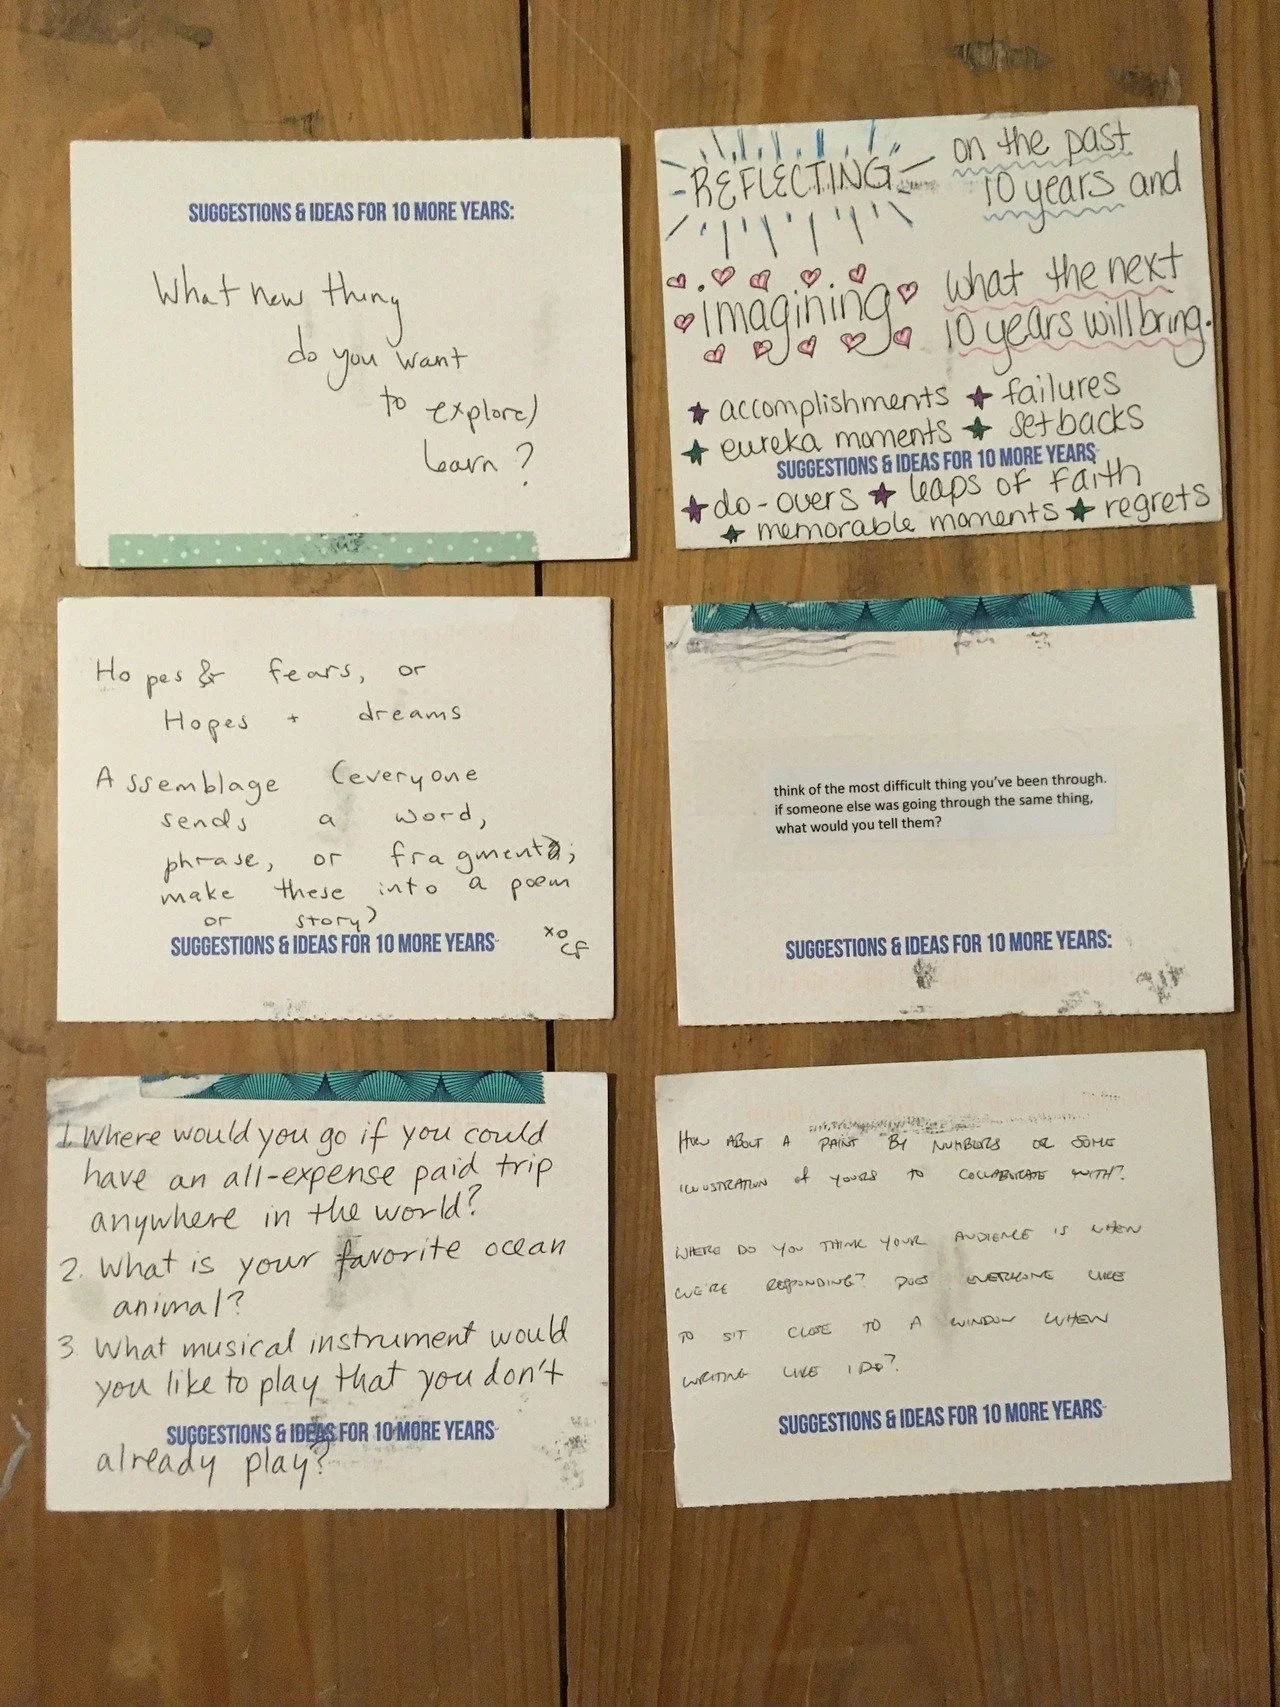 SUGGESTIONS & IDEAS FOR 10 MORE YEARS:
What new thing
do you want
to explore/
learn?
REFLECTING on the past
10 years and
imagining what the next
10 years will bring.
accomplishments failures
eureka moments setbacks
SUGGESTIONS & IDEAS FOR 10 MORE YEARS
do-overs leaps of faith
memorable moments regrets
Hopes & fears, or
Hopes + dreams
Assemblage (everyone
sends a word,
phrase, or fragment;
make these into a poem
or story)
xo
CF
SUGGESTIONS & IDEAS FOR 10 MORE YEARS
think of the most difficult thing you've been through.
if someone else was going through the same thing,
what would you tell them?
SUGGESTIONS & IDEAS FOR 10 MORE YEARS:
1. Where would you go if you could
have an all-expense paid trip
anywhere in the world?
2. What is your favorite ocean
animal?
3. What musical instrument would
you like to play that you don't
SUGGESTIONS & IDEAS FOR 10 MORE YEARS
already play?
HOW ABOUT A PAINT BY NUMBERS OR SOME
ILLUSTRATION OF YOURS TO COLLABORATE WITH?
WHERE DO YOU THINK YOUR AUDIENCE IS WHEN
WE'RE RESPONDING? DOES EVERYONE LIKE
TO SIT CLOSE TO A WINDOW WHEN
WRITING LIKE I DO?
SUGGESTIONS & IDEAS FOR 10 MORE YEARS